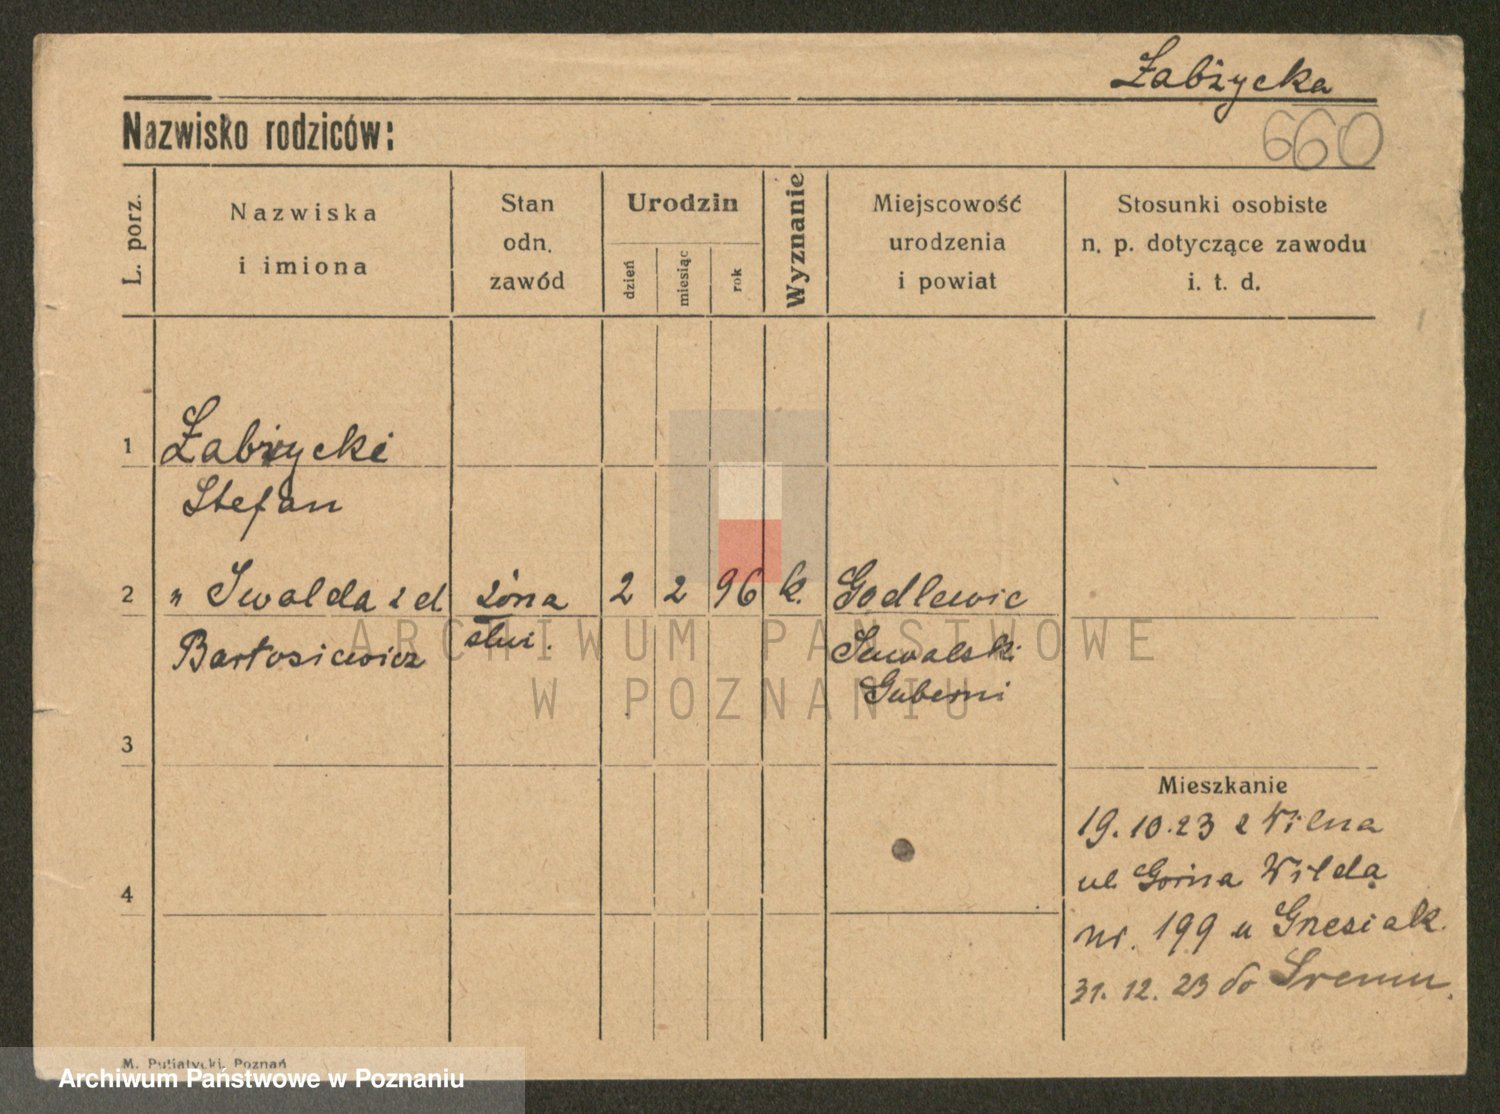 Żabżycka
660
Nazwisko rodziców:
L. porz.
Nazwiska
i imiona
Stan
odn.
zawód
Urodzin
dzień
miesiąc
rok
Wyznanie
Miejscowość
urodzenia
i powiat
Stosunki osobiste
n. p. dotyczące zawodu
i. t. d.
1 Żabżycki
Stefan
2 " Iwalda zd żona 2 2 96 k. Godlewic
Bartosiewicz służ. Suwalski
Guberni
3
Mieszkanie
19.10.23 z Wilna
ul. Gorna Wilda
4
nr. 199 u Gnesiak.
31.12.23 do Sremu.
M. Putiatycki, Poznań
ARCHIWUM PAŃSTWOWE
W POZNANIU
Archiwum Państwowe w Poznaniu